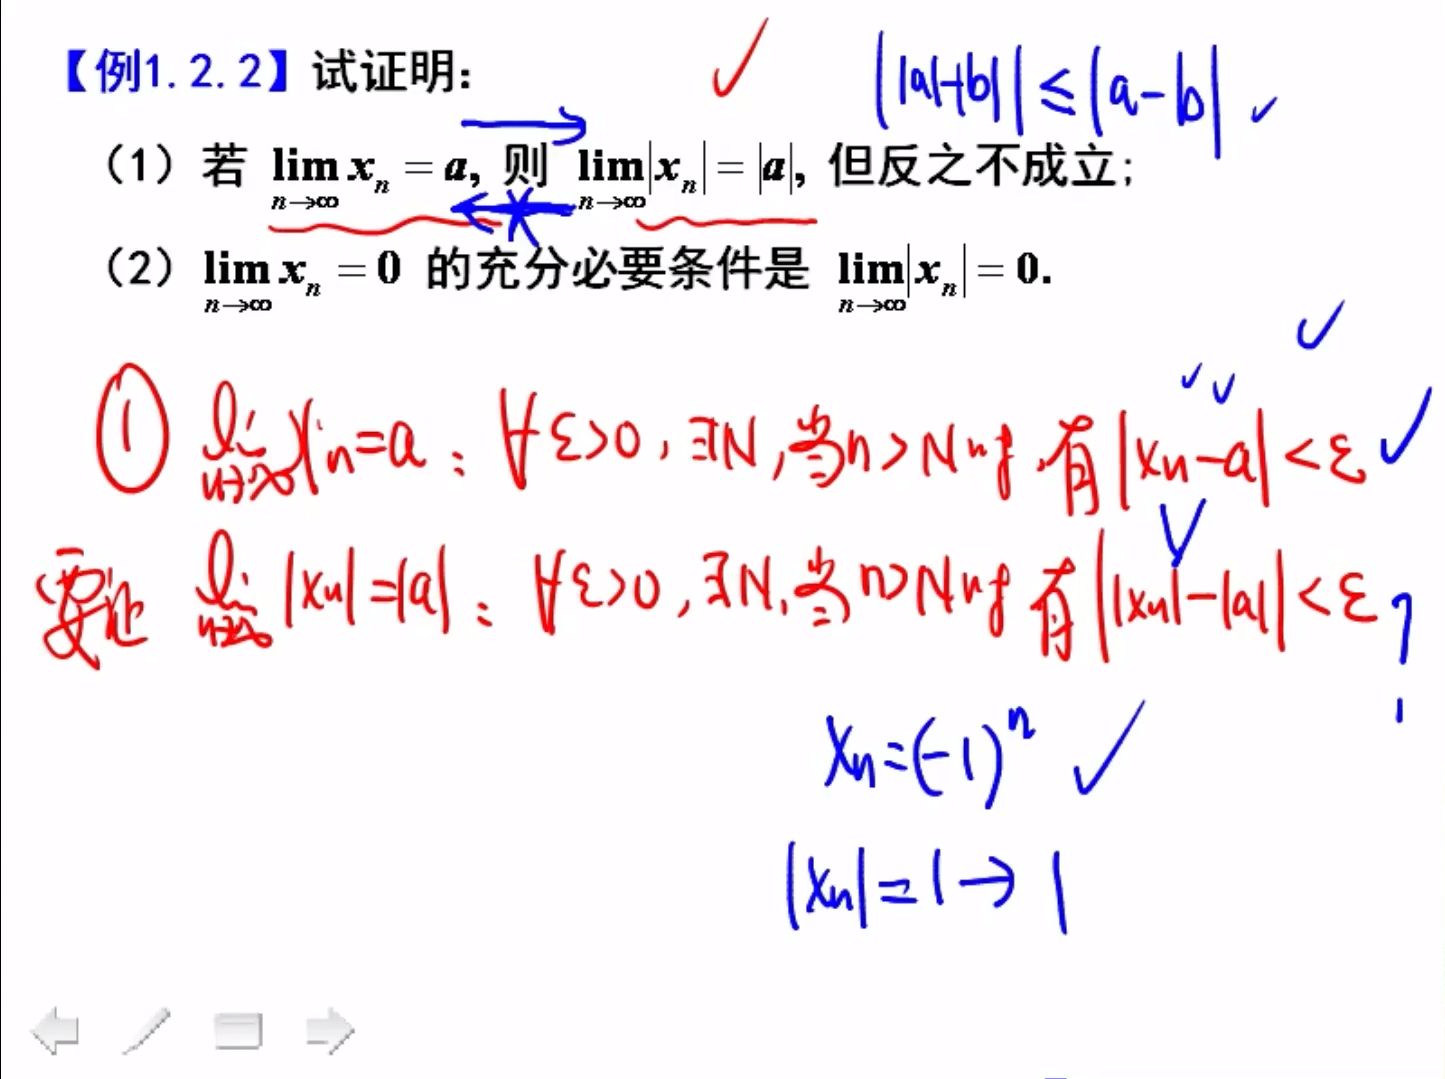 【例1.2.2】试证明:
||a|-|b|| ≤ |a-b|
(1) 若 lim_{n→∞} x_n = a, 则 lim_{n→∞} |x_n| = |a|, 但反之不成立;
(2) lim_{n→∞} x_n = 0 的充分必要条件是 lim_{n→∞} |x_n| = 0.
① lim_{n→∞} x_n = a: ∀ε>0, ∃N, 当n>N时, 有|x_n-a|<ε
要证 lim_{n→∞} |x_n| = |a|: ∀ε>0, ∃N, 当n>N时 有||x_n|-|a||<ε ?
x_n = (-1)^n
|x_n| = 1 → 1